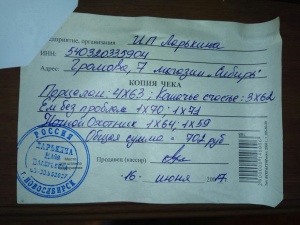 Предприятие, организация ИП Ларькина
ИНН: 540320335904
Адрес: Громова, 7 магазин „Сибирь“
КОПИЯ ЧЕКА
Порислон: 4х63; Кошачье счастье: 3х62
Ем без проблем 1х70; 1х71
Ночной Охотник 1х64; 1х59
Общая сумма = 702 руб
Продавец (кассир)
16 июня
РОССИЯ
ЛАРЬКИНА
г. НОВОСИБИРСК